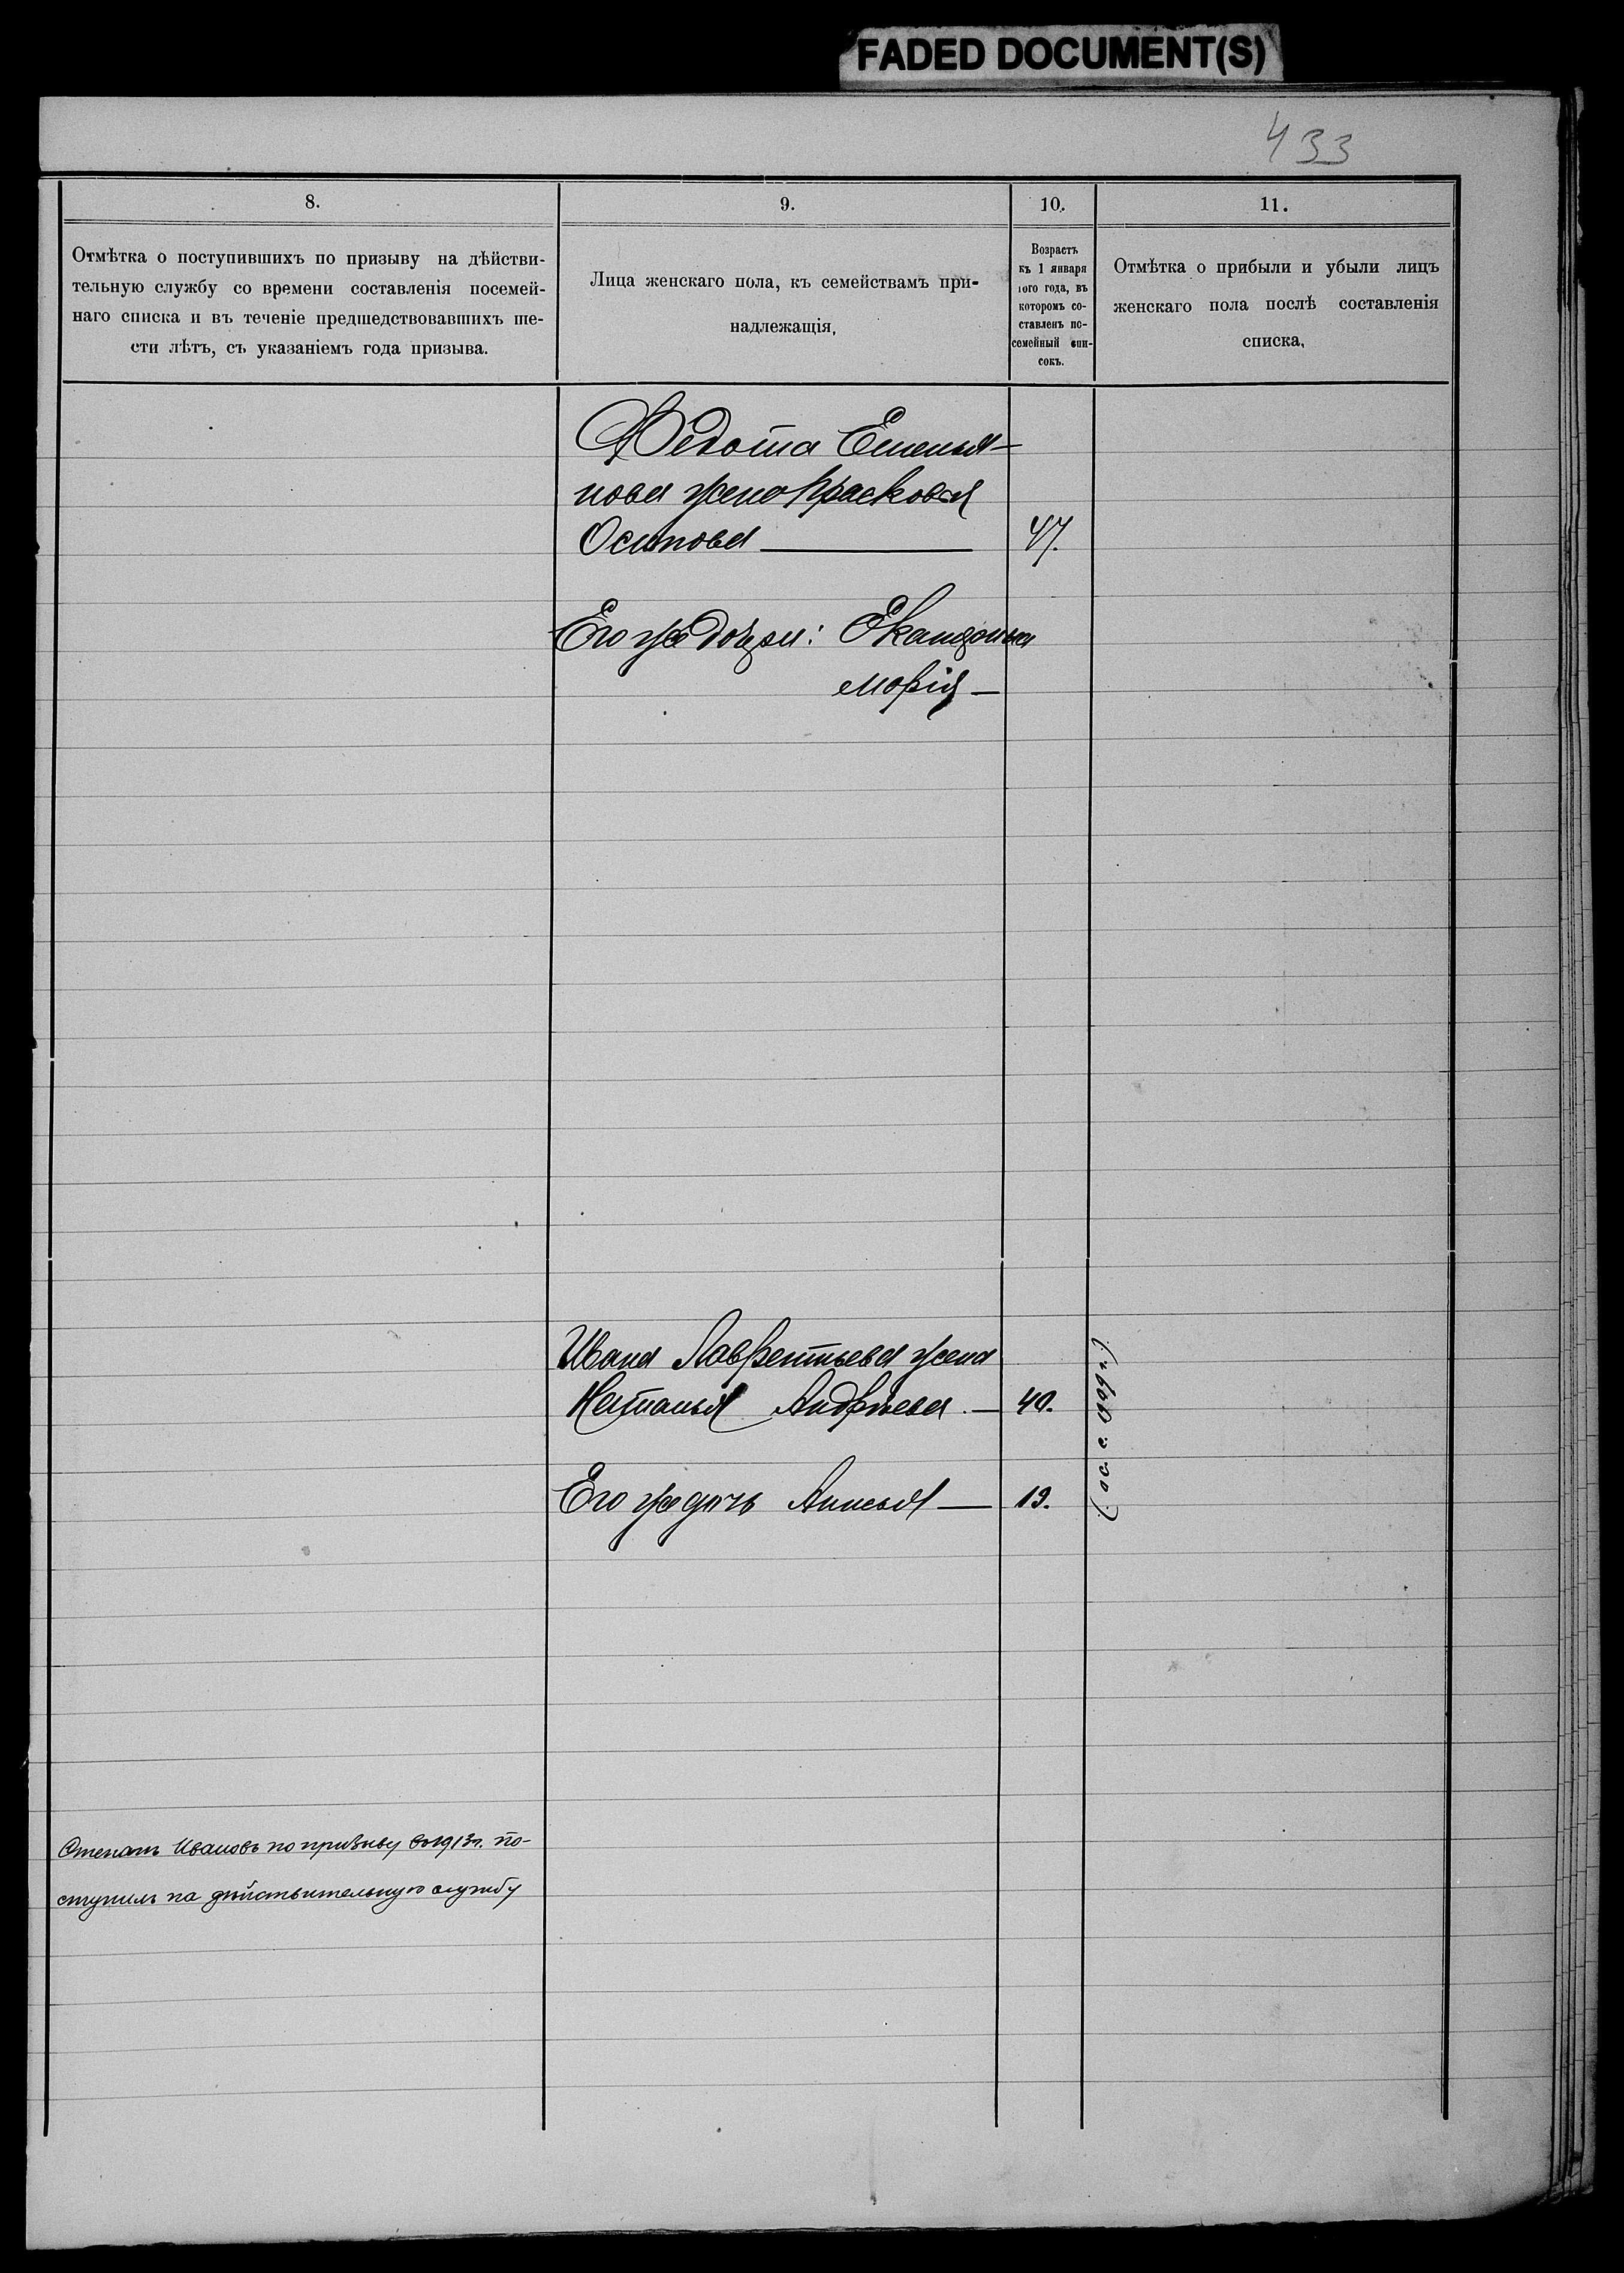 FADED DOCUMENT(S)
433
8.
9.
10.
11.
Отмѣтка о поступившихъ по призыву на дѣйстви-
тельную службу со времени составленія посемей-
наго списка и въ теченіе предшедствовавшихъ ше-
сти лѣтъ, съ указаніемъ года призыва.
Лица женскаго пола, къ семействамъ при-
надлежащія,
Возрастъ
къ 1 января
того года, въ
которомъ со-
ставленъ по-
семейный спи-
сокъ.
Отмѣтка о прибыли и убыли лицъ
женскаго пола послѣ составленія
списка,
Ѳедота Емелья-
нова жена Прасковья
Осипова — 47.
Его же дочери:
Марія —
Ивана Лаврентьева жена
Наталья Андрѣева — 40.
Его же дочь Анисья — 19.
Степанъ Ивановъ по призыву въ 1913 г. по-
ступилъ на дѣйствительную службу